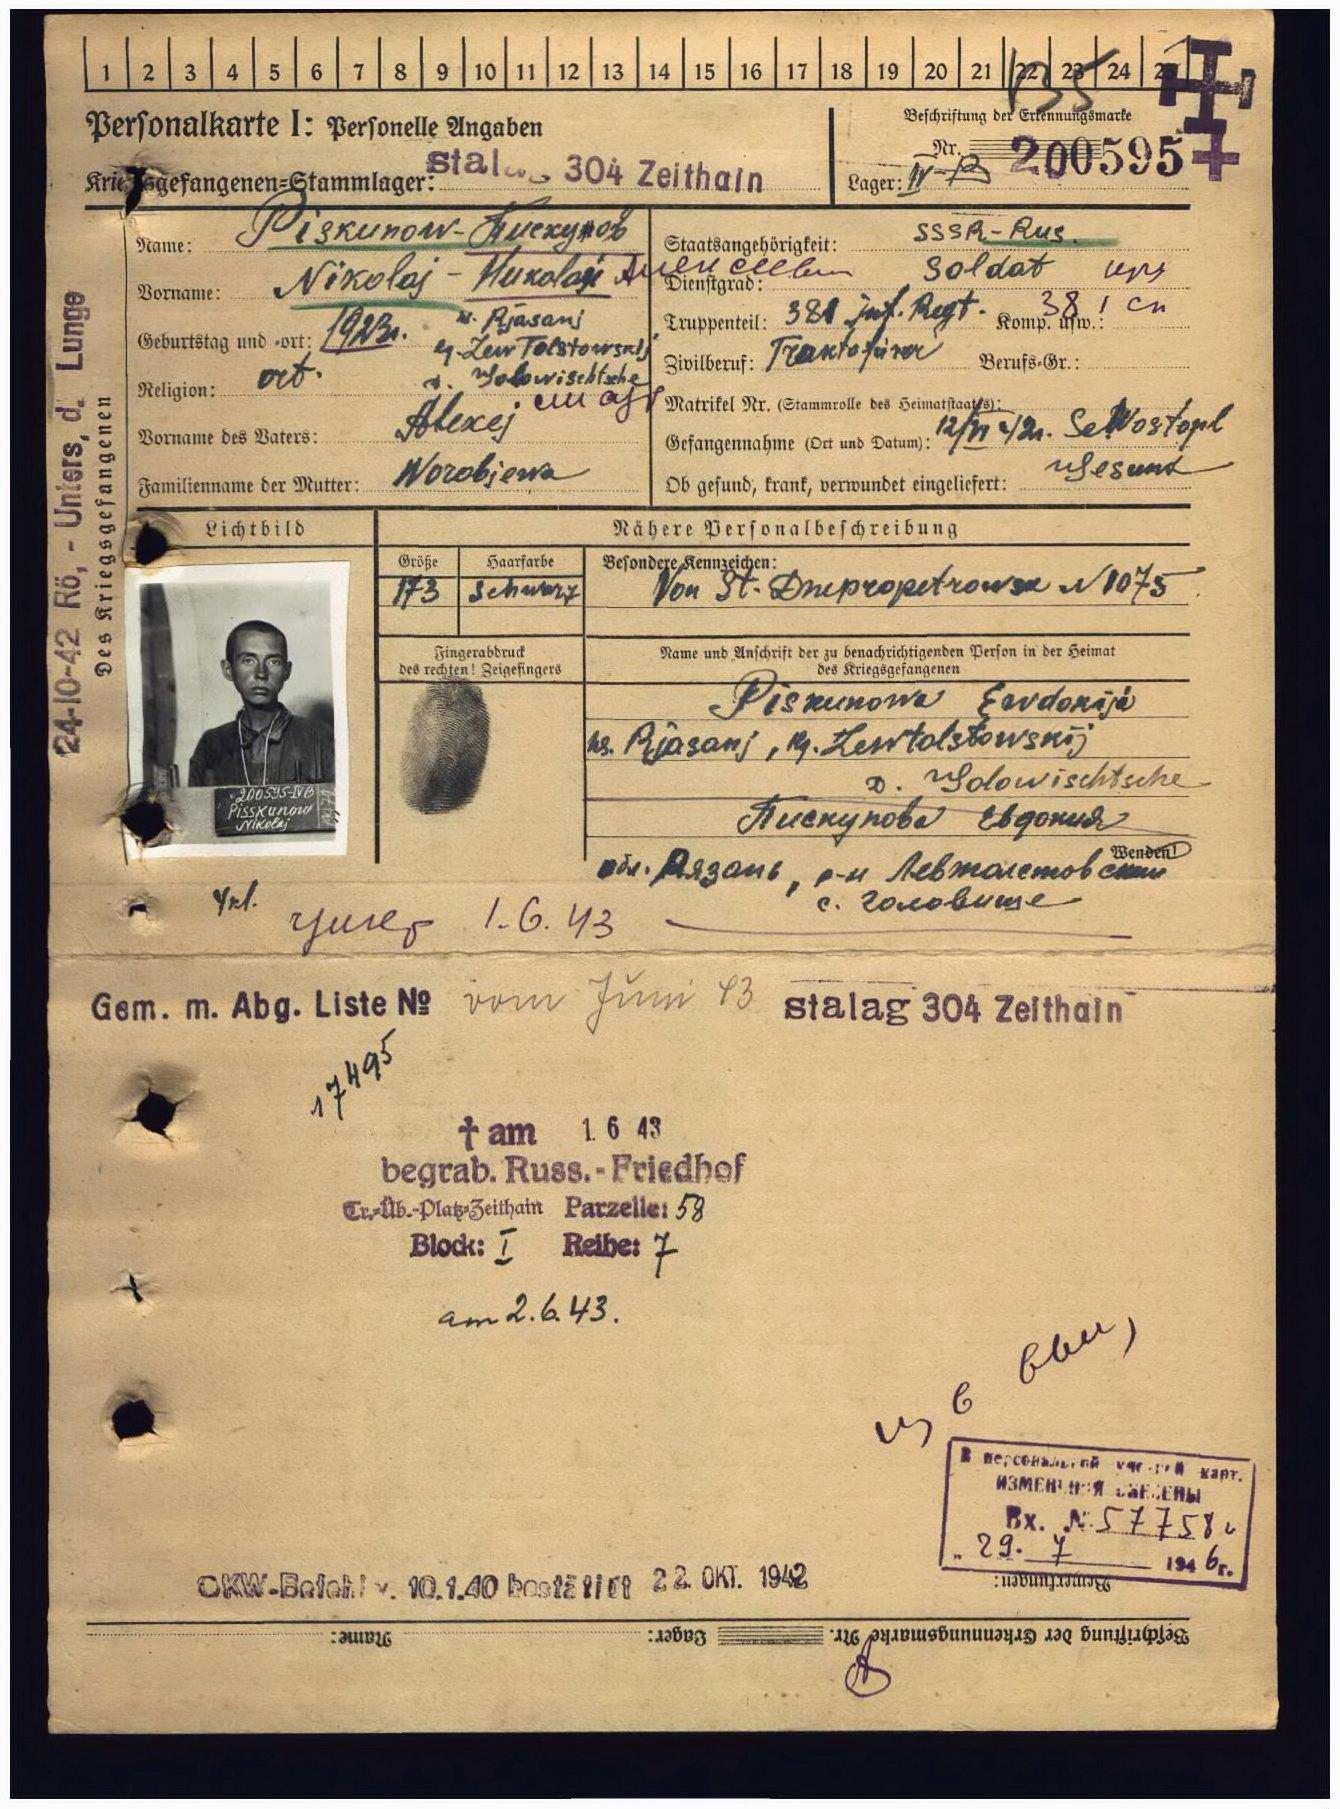 1 2 3 4 5 6 7 8 9 10 11 12 13 14 15 16 17 18 19 20 21 22 23 24 25
135
Personalkarte I: Personelle Angaben
Kriegsgefangenen-Stammlager: Stalag 304 Zeithain
Beschriftung der Erkennungsmarke
Nr. 200595
Lager: IV-B
Name: Piskunow - Пискунов
Vorname: Nikolaj - Николай Алексеевич
Geburtstag und -ort: 1923 Rjasanj
Lewtolstowskij
Golowischtsche
Religion: ort.
Vorname des Vaters: Alexej
Familienname der Mutter: Worobjewa
Staatsangehörigkeit: SSSR-Rus.
Dienstgrad: Soldat
Truppenteil: 381 Inf. Regt. Komp. usw.: 381 сп
Zivilberuf: Berufs-Gr.:
Matrikel Nr. (Stammrolle des Heimatstaates):
Gefangennahme (Ort und Datum): 12/VI 42. Sewostopl
Ob gesund, krank, verwundet eingeliefert: Gesund
24-10-42 Rö, - Unters, d. Lunge
Des Kriegsgefangenen
Lichtbild
Nähere Personalbeschreibung
Größe Haarfarbe Besondere Kennzeichen:
173 schwarz Von St. Dnepropetrowsk N 1075
Fingerabdruck
des rechten! Zeigefingers
Name und Anschrift der zu benachrichtigenden Person in der Heimat
des Kriegsgefangenen
Piskunowa Ewdokija
Rjasanj, Lewtolstowskij
D. Golowischtsche
Пискунова Евдокия
Wenden!
обл. Рязань, р-н Левтолстовский
с. Головище
200595-IVB
Pisskunow
Nikolaj
умер 1.6.43
Gem. m. Abg. Liste № vom Juni 43 Stalag 304 Zeithain
17495
† am 1 6 43
begrab. Russ.-Friedhof
Tr.-Üb.-Platz-Zeithain Parzelle: 58
Block: I Reihe: 7
am 2.6.43.
В персональной учетной карт.
ИЗМЕНЕНИЯ ВНЕСЕНЫ
Вх. № 57758
"29. 7 1946г.
OKW-Befehl v. 10.1.40 bestätigt 22. OKT. 1942
Bemerkungen:
Beschriftung der Erkennungsmarke Nr. Lager: Name: